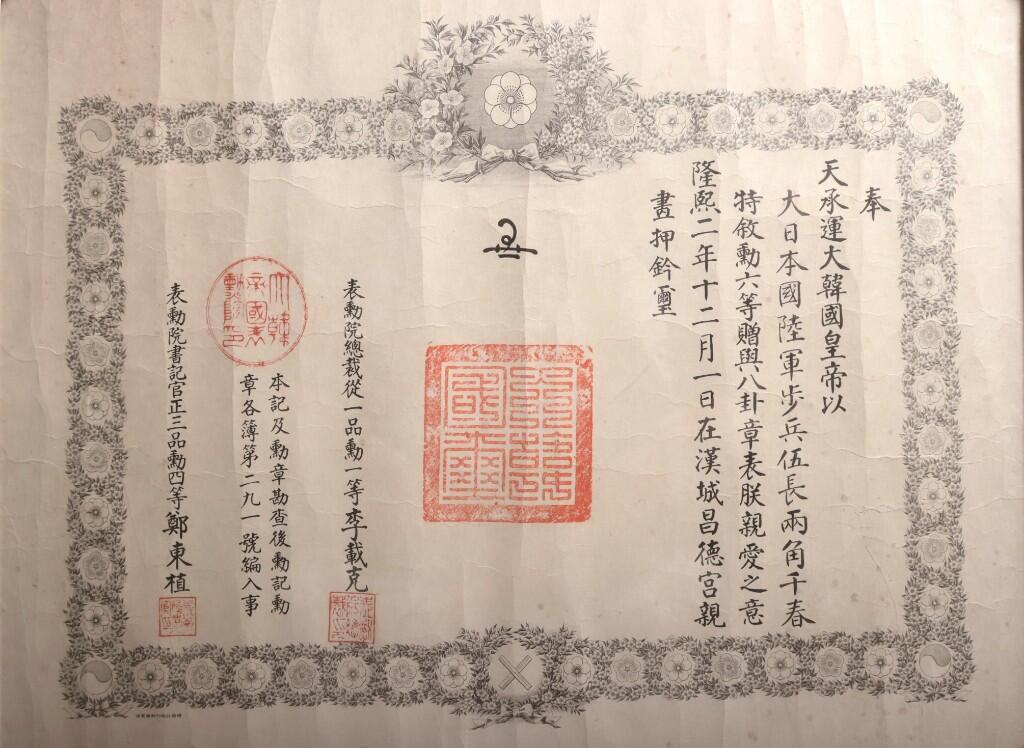 奉
天承運大韓國皇帝以
大日本國陸軍步兵伍長兩角千春
特敘勳六等贈與八卦章表朕親愛之意
隆熙二年十二月一日在漢城昌德宮親
畫押鈐璽
表勳院總裁從一品勳一等李載克
本記及勳章勘查後勳記勳
章各簿第二九一號編入事
大韓
帝國表
勳院印
表勳院書記官正三品勳四等鄭東植